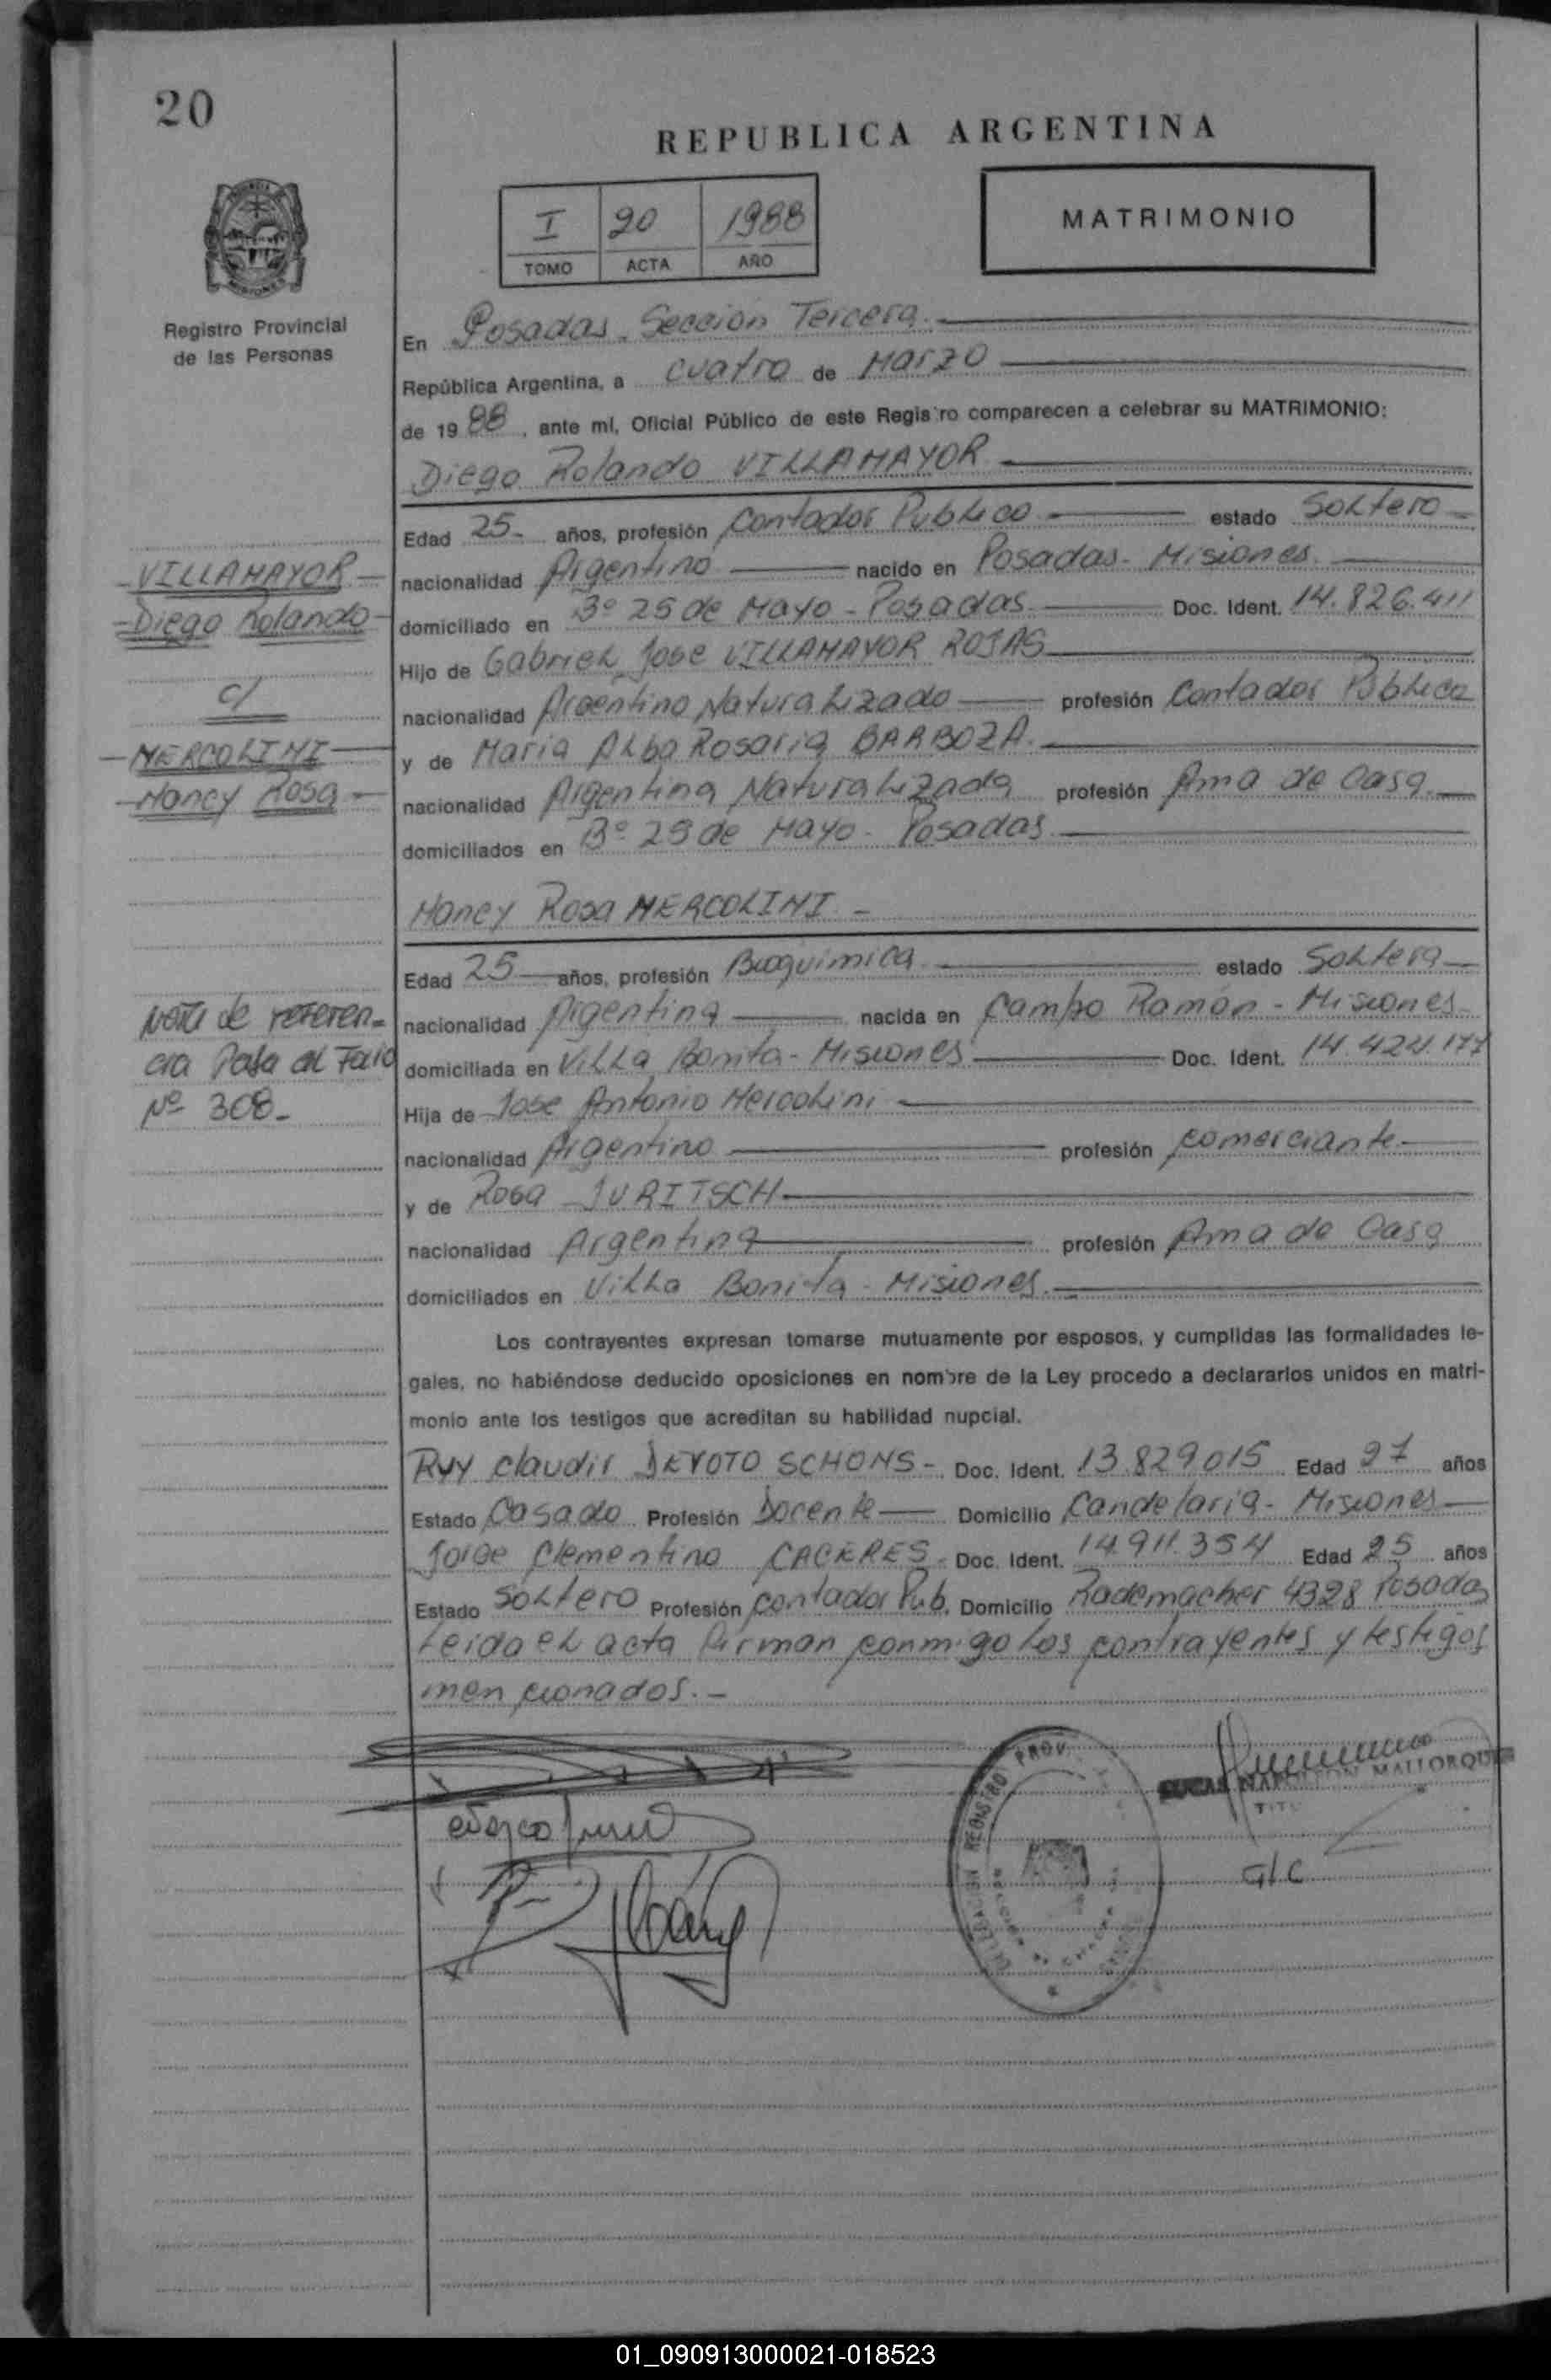 20
REPUBLICA ARGENTINA
I 20 1988
TOMO ACTA AÑO
MATRIMONIO
Registro Provincial
de las Personas
En Posadas - Sección Tercera.
República Argentina, a cuatro de Marzo
de 1988, ante mí, Oficial Público de este Registro comparecen a celebrar su MATRIMONIO:
Diego Rolando VILLAMAYOR
Edad 25- años, profesión Contador Publico estado Soltero
nacionalidad Argentino nacido en Posadas - Misiones.
domiciliado en Bº 25 de Mayo - Posadas Doc. Ident. 14.826.411
Hijo de Gabriel Jose VILLAMAYOR ROJAS
nacionalidad Argentino Naturalizado profesión Contador Publico
y de Maria Alba Rosaria BARBOZA.
nacionalidad Argentina Naturalizada profesión Ama de Casa.
domiciliados en Bº 25 de Mayo - Posadas
VILLAMAYOR
Diego Rolando
c/
MERCOLINI
Nancy Rosa
Nancy Rosa MERCOLINI -
Edad 25 años, profesión Bioquimica estado Soltera
nacionalidad Argentina nacida en Campo Ramón - Misiones
domiciliada en Villa Bonita - Misiones Doc. Ident. 14.424.177
Hija de Jose Antonio Mercolini
nacionalidad Argentino profesión comerciante
y de Rosa JURITSCH
nacionalidad Argentina profesión Ama de Casa
domiciliados en Villa Bonita - Misiones.
Nota de referen=
cia Pasa al Folio
Nº 308-
Los contrayentes expresan tomarse mutuamente por esposos, y cumplidas las formalidades le-
gales, no habiéndose deducido oposiciones en nombre de la Ley procedo a declararlos unidos en matri-
monio ante los testigos que acreditan su habilidad nupcial.
Ruy Claudir DEVOTO SCHONS - Doc. Ident. 13.829.015 Edad 27 años
Estado Casado Profesión Docente Domicilio Candelaria - Misiones
Jorge Clementino CACERES - Doc. Ident. 14.911.354 Edad 25 años
Estado Soltero Profesión contador Pub. Domicilio Rademacher 4328 Posadas
Leida el acta firman conmigo los contrayentes y testigos
mencionados. -
REGISTRO PROV.
NAPOLEON MALLORQUIN
G/C
01_090913000021-018523